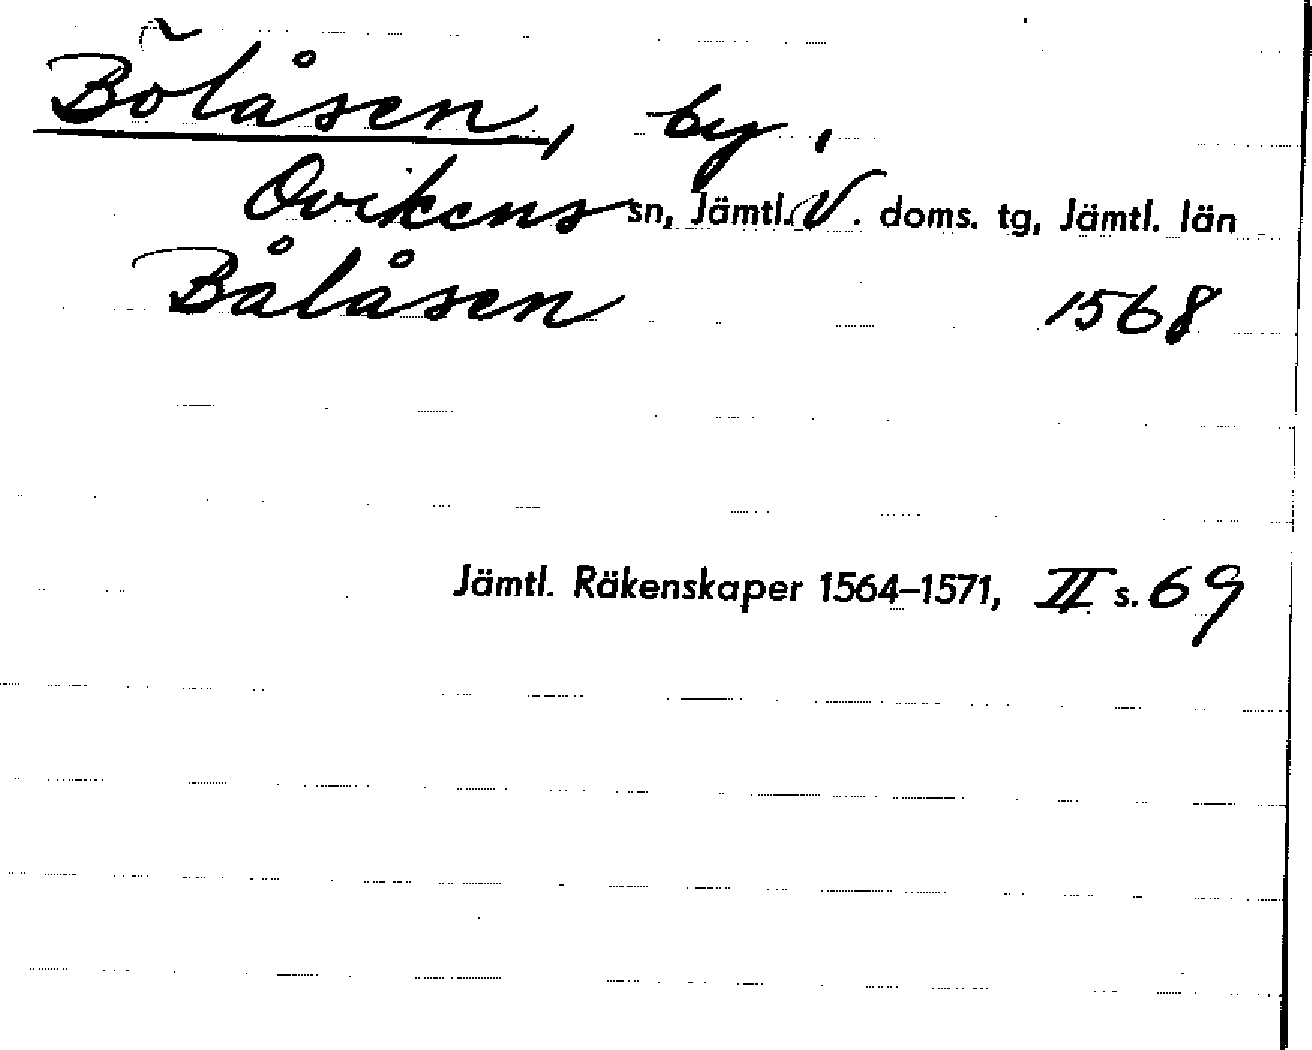 Bölåsen, by,
Ovikens sn, Jämtl. V. doms. tg, Jämtl. län
Bålåsen 1568
Jämtl. Räkenskaper 1564–1571, II s. 69